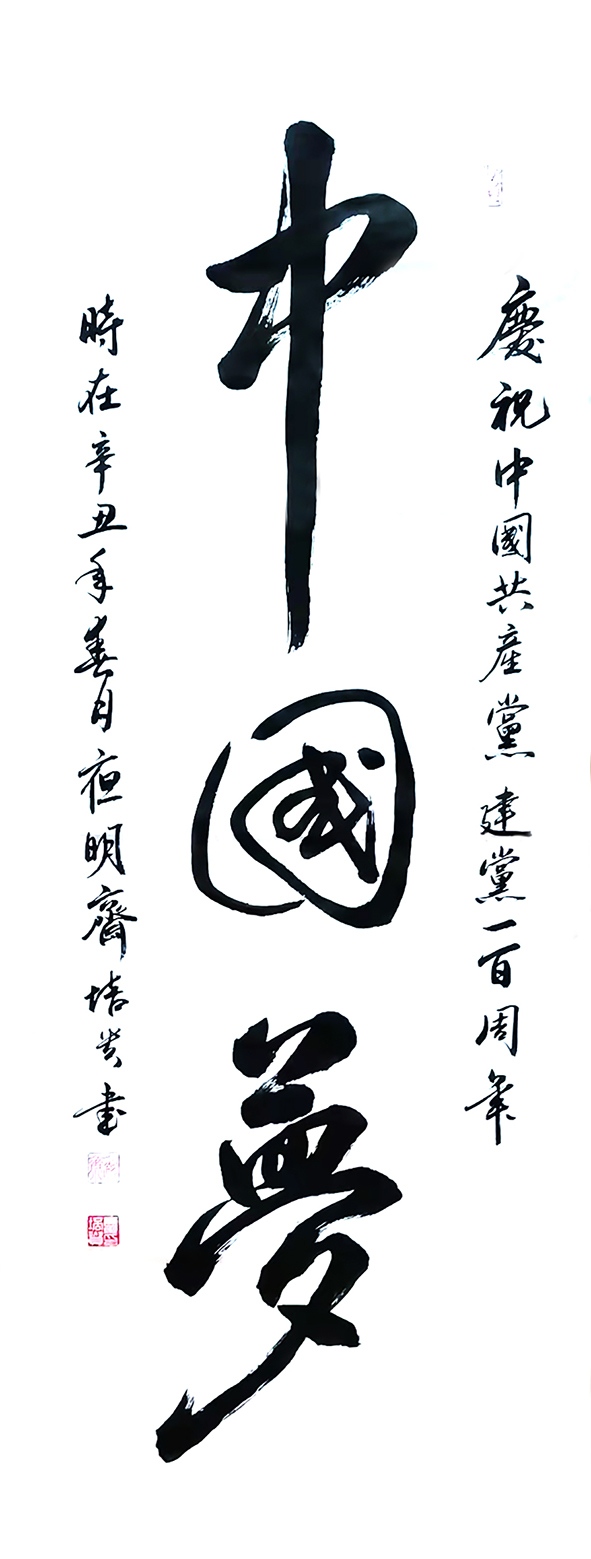 慶祝中國共產黨建黨一百周年
中國夢
時在辛丑年春月夜明齋培貴書